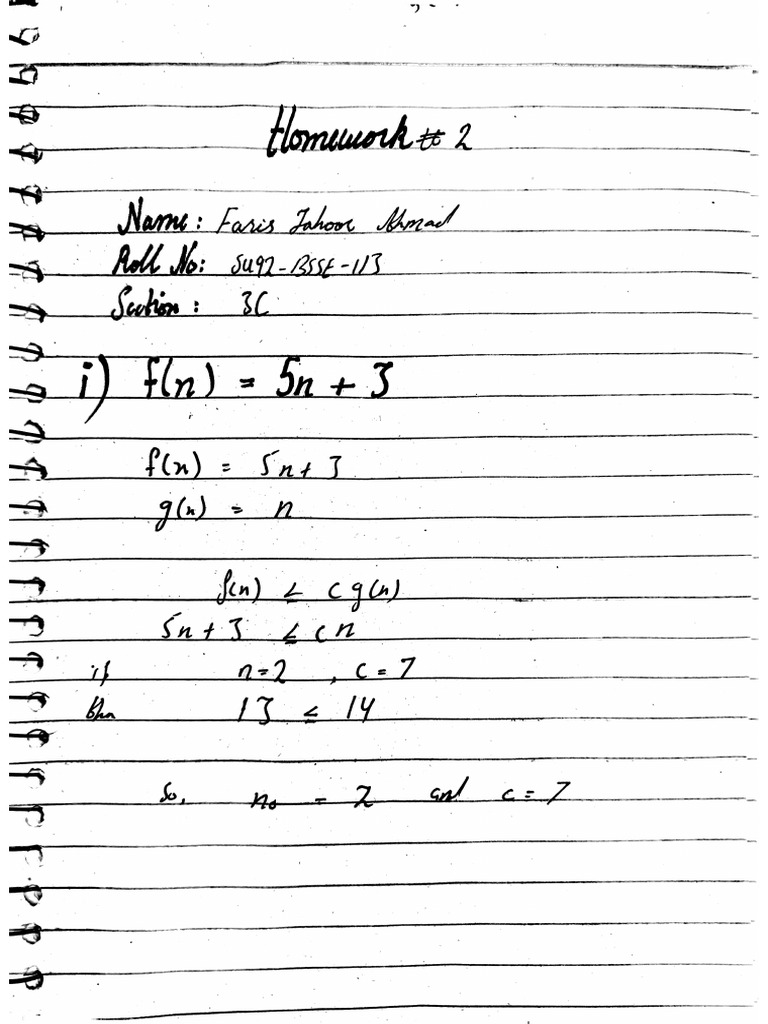 Homework # 2
Name: Faris Ahmad
Roll No: SU92-BSSE-113
Section: 3C
i) f(n) = 5n + 3
f(n) = 5n + 3
g(n) = n
f(n) ≤ c g(n)
5n + 3 ≤ cn
if n=2 , c=7
then 13 ≤ 14
So, n₀ = 2 and c = 7